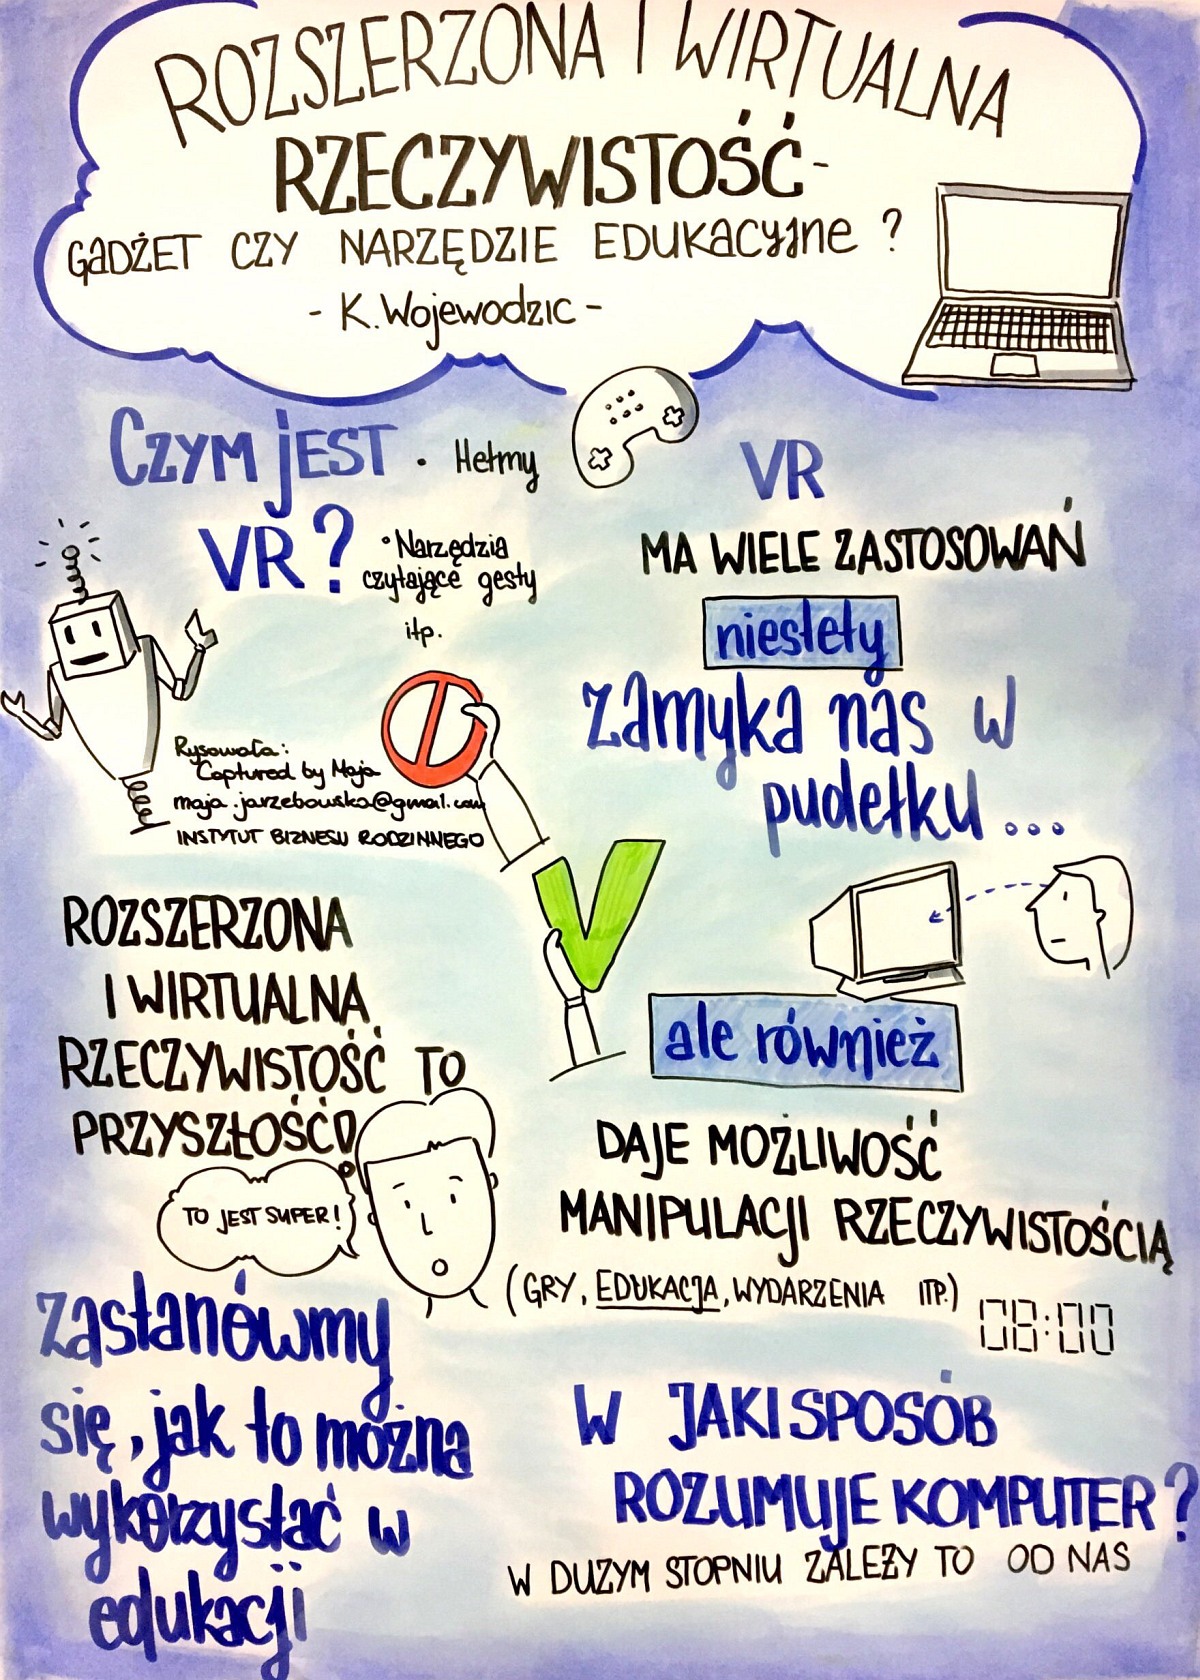 ROZSZERZONA I WIRTUALNA
RZECZYWISTOŚĆ-
GADŻET CZY NARZĘDZIE EDUKACYJNE ?
- K. Wojewodzic -
CZYM JEST
VR?
• Hełmy
• Narzędzia
czytające gesty
itp.
Rysowała:
Captured by Maja
maja.jarzebowska@gmail.com
INSTYTUT BIZNESU RODZINNEGO
VR
MA WIELE ZASTOSOWAŃ
niestety
zamyka nas w
pudełku ...
ale również
DAJE MOŻLIWOŚĆ
MANIPULACJI RZECZYWISTOŚCIĄ
(GRY, EDUKACJA, WYDARZENIA ITP.)
08:00
ROZSZERZONA
I WIRTUALNA
RZECZYWISTOŚĆ TO
PRZYSZŁOŚĆ!
TO JEST SUPER!
zastanówmy
się, jak to można
wykorzystać w
edukacji
W JAKI SPOSÓB
ROZUMUJE KOMPUTER?
W DUŻYM STOPNIU ZALEŻY TO OD NAS